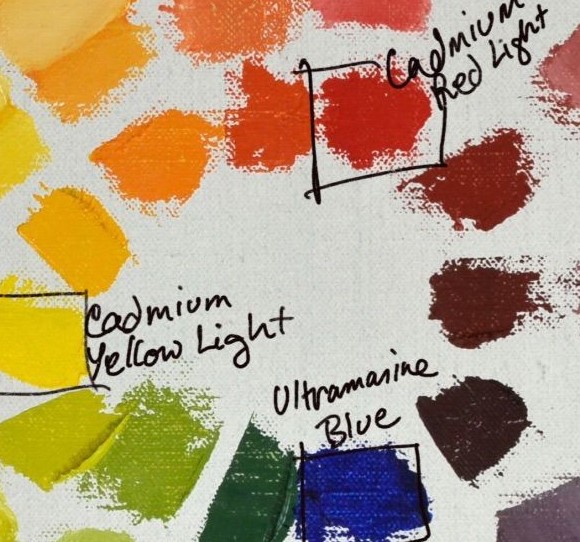 Cadmium
Red Light
Cadmium
Yellow Light
Ultramarine
Blue